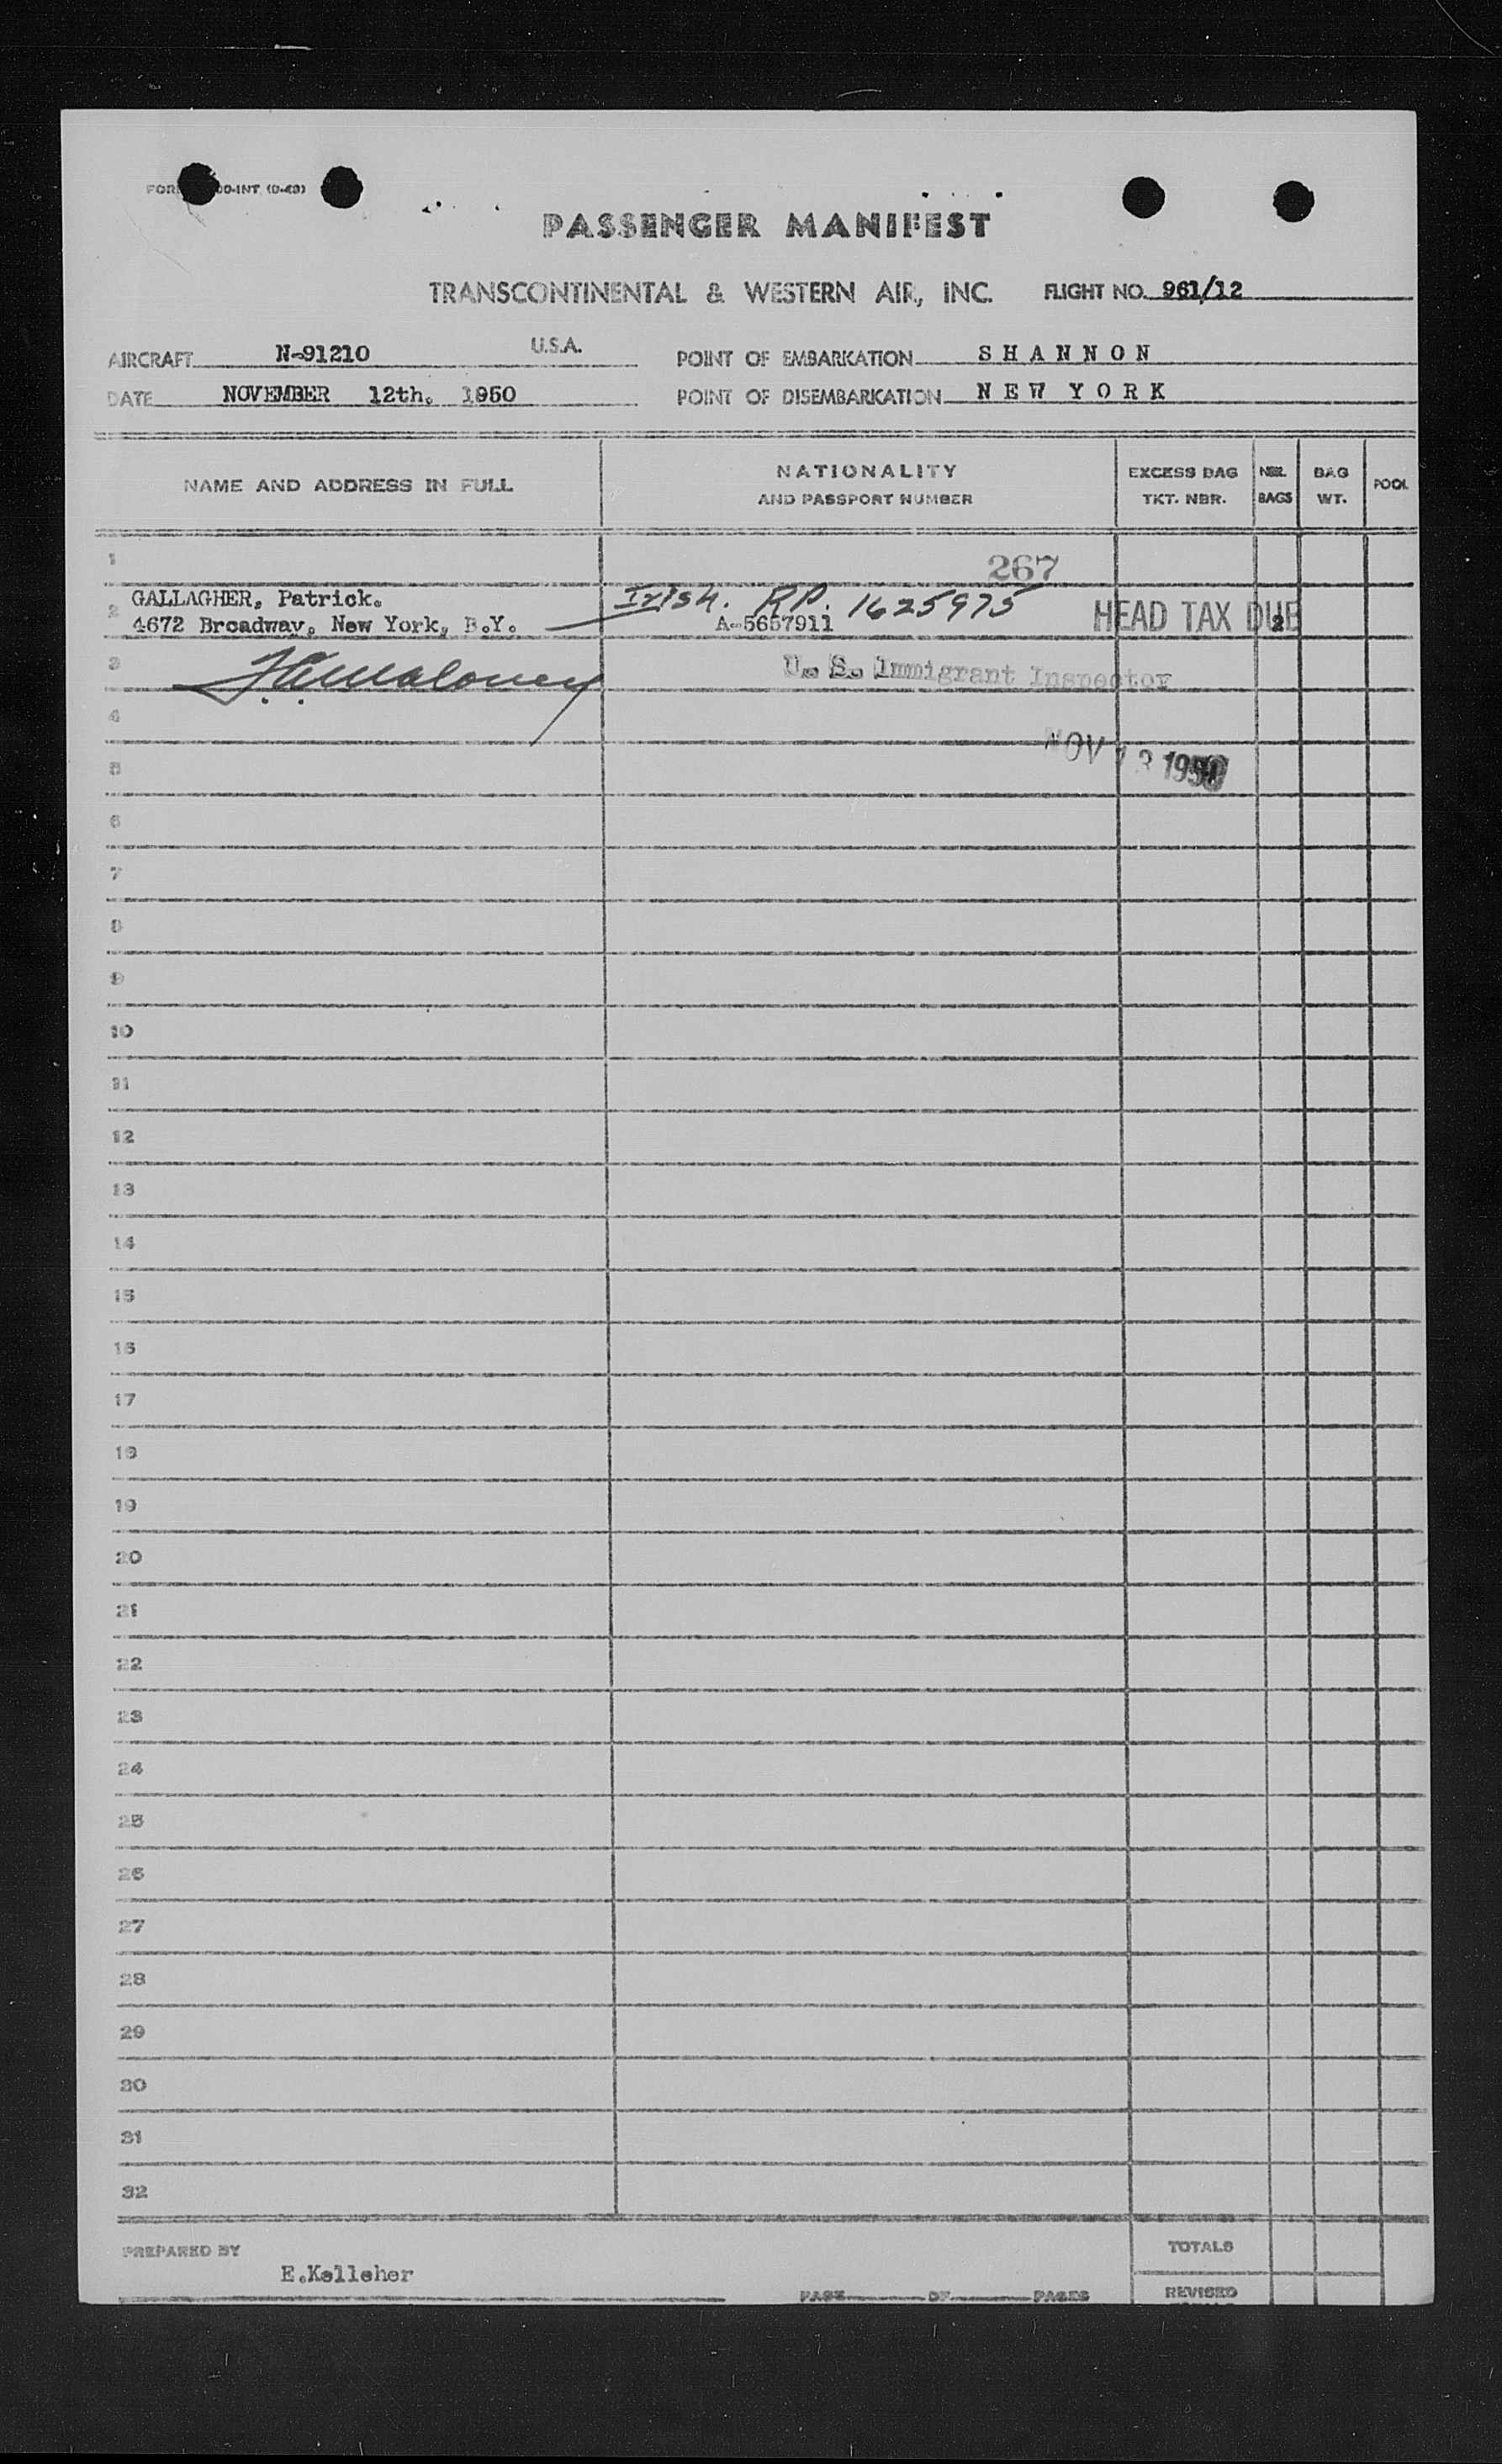 00-INT. (0-49)
PASSENGER MANIFEST
TRANSCONTINENTAL & WESTERN AIR, INC. FLIGHT NO. 961/12
AIRCRAFT N-91210 U.S.A. POINT OF EMBARKATION SHANNON
DATE NOVEMBER 12th. 1950 POINT OF DISEMBARKATION NEW YORK
NAME AND ADDRESS IN FULL NATIONALITY AND PASSPORT NUMBER EXCESS BAG TKT. NBR. NBR. BAGS BAG WT. POOL
1 267
GALLAGHER, Patrick. Irish. RP. 1625975
2 4672 Broadway, New York, B.Y. A-5657911 HEAD TAX DUE 2
3 U. S. Immigrant Inspector
4
NOV 13 1950
5
6
7
8
9
10
11
12
13
14
15
16
17
18
19
20
21
22
23
24
25
26
27
28
29
30
31
32
PREPARED BY TOTALS
E.Kelleher
PAGE OF PAGES REVISED